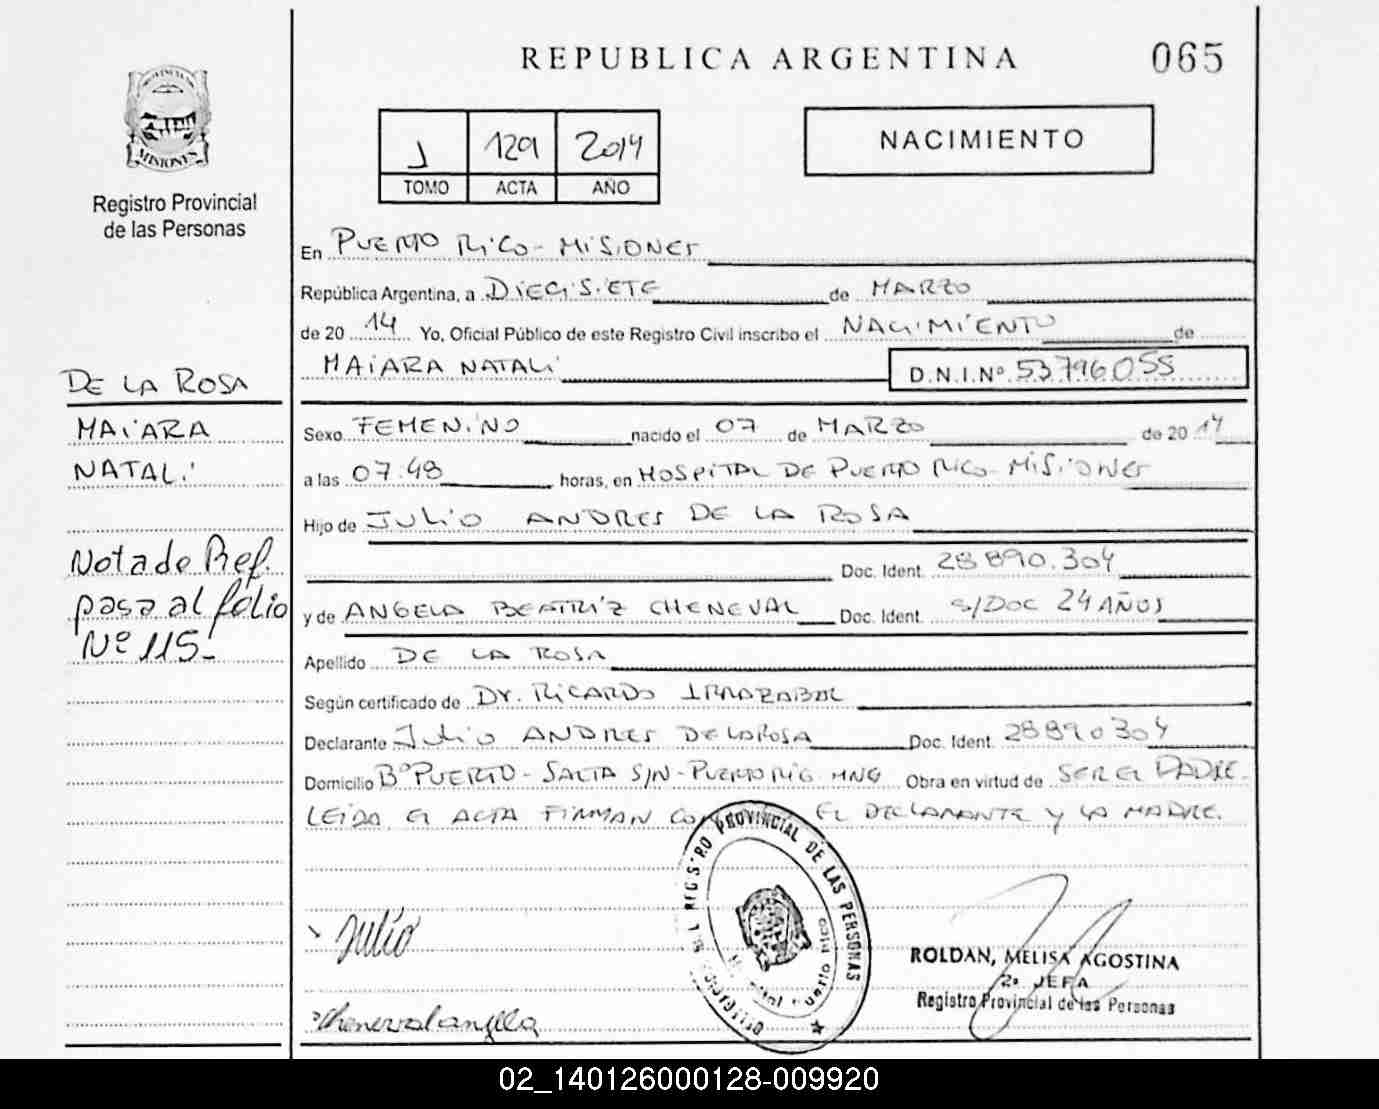 REPUBLICA ARGENTINA
065
PROVINCIA DE
MISIONES
Registro Provincial
de las Personas
1 129 2014
TOMO ACTA AÑO
NACIMIENTO
En PUERTO RICO - MISIONES
República Argentina, a DIECISIETE de MARZO
de 20 14 Yo, Oficial Público de este Registro Civil inscribo el NACIMIENTO de
MAIARA NATALI D.N.I.Nº 53796055
DE LA ROSA
MAIARA
NATALI
Nota de Ref.
pasa al folio
Nº 115-
Sexo FEMENINO nacido el 07 de MARZO de 20 14
a las 07:48 horas, en HOSPITAL DE PUERTO RICO - MISIONES
Hijo de JULIO ANDRES DE LA ROSA
Doc. Ident. 28 890.304
y de ANGELA BEATRIZ CHENEVAL Doc. Ident. S/DOC 24 AÑOS
Apellido DE LA ROSA
Según certificado de Dr. RICARDO IRRAZABAL
Declarante JULIO ANDRES DE LA ROSA Doc. Ident. 28890304
Domicilio Bº PUERTO - SALTA S/N - PUERTO RICO MNES Obra en virtud de SER EL PADRE-
LEIDA EL ACTA FIRMAN EL DECLARANTE Y LA MADRE.
REGISTRO PROVINCIAL DE LAS PERSONAS
Puerto Rico
Julio
Cheneval angela
ROLDAN, MELISA AGOSTINA
2º JEFA
Registro Provincial de las Personas
02_140126000128-009920